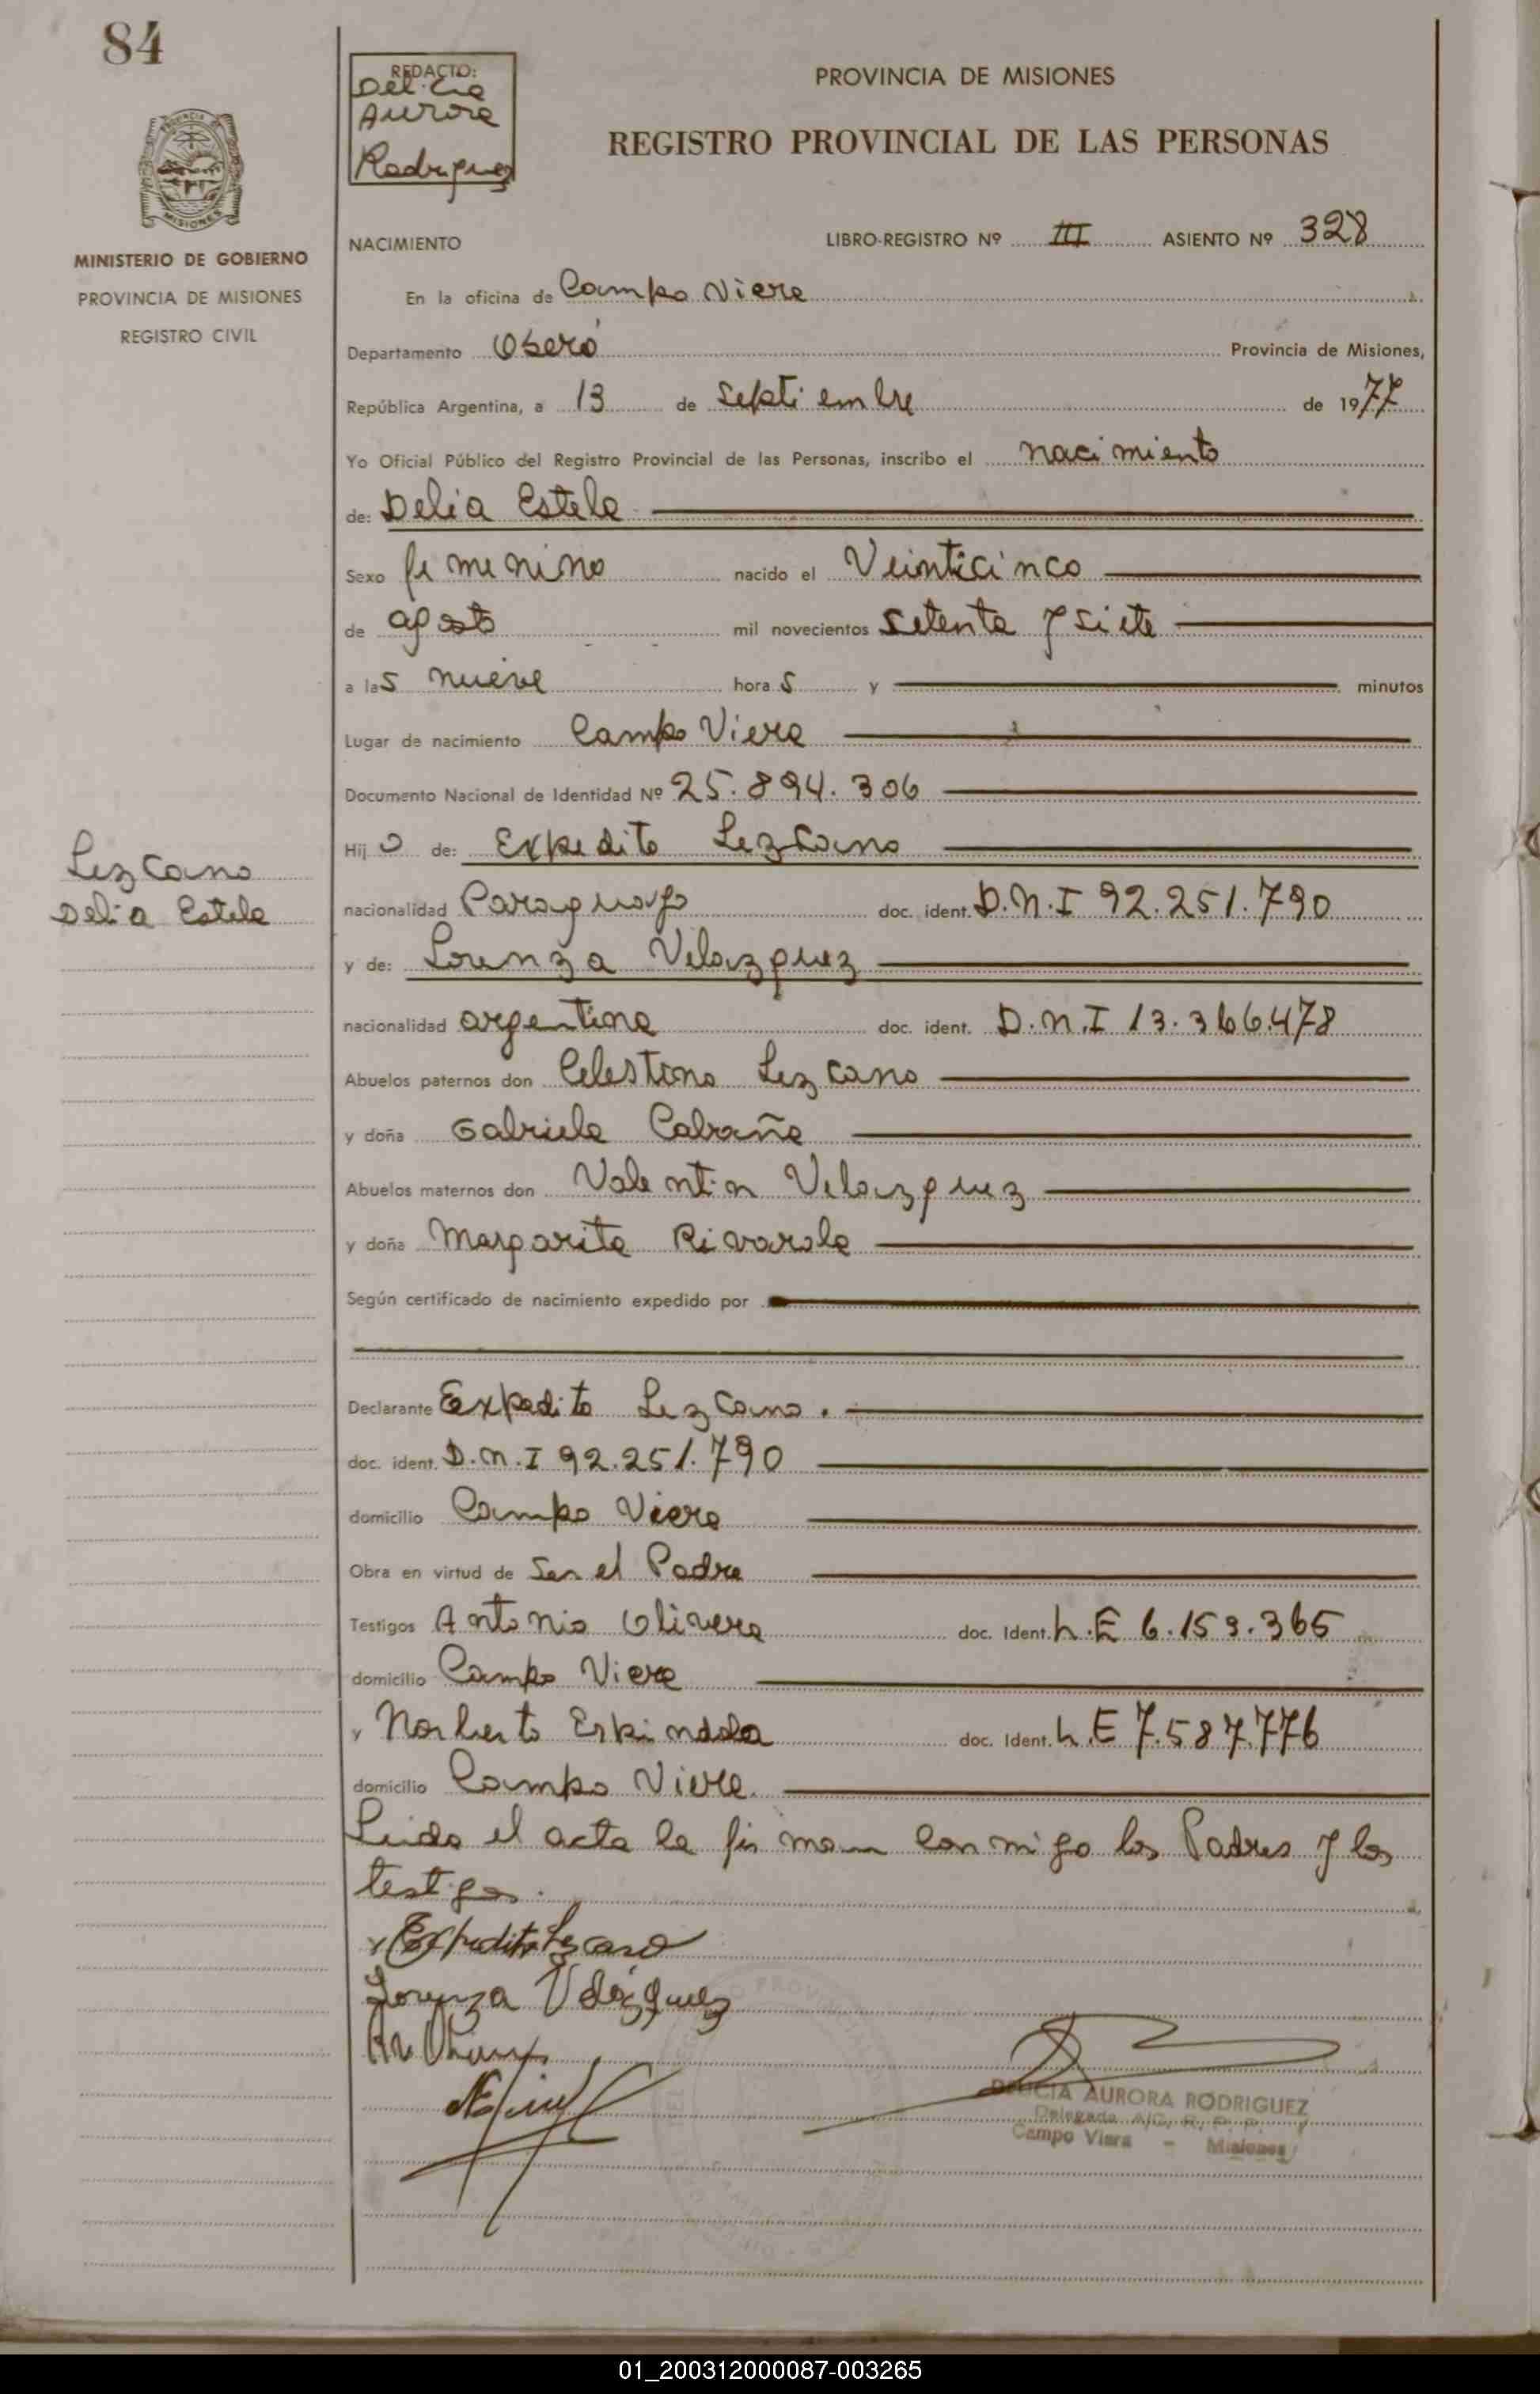 84
REDACTO:
Delicia
Aurora
Rodriguez
PROVINCIA DE MISIONES
REGISTRO PROVINCIAL DE LAS PERSONAS
MINISTERIO DE GOBIERNO
PROVINCIA DE MISIONES
REGISTRO CIVIL
NACIMIENTO LIBRO-REGISTRO Nº III ASIENTO Nº 328
En la oficina de Campo Viera
Departamento Oberá Provincia de Misiones,
República Argentina, a 13 de Septiembre de 1977
Yo Oficial Público del Registro Provincial de las Personas, inscribo el nacimiento
de: Delia Estela
Sexo femenino nacido el Veinticinco
de agosto mil novecientos setenta y siete
a las nueve horas y minutos
Lugar de nacimiento Campo Viera
Documento Nacional de Identidad Nº 25.894.306
Hijo de: Expedito Lezcano
Lezcano
Delia Estela
nacionalidad Paraguayo doc. ident. D.N.I 92.251.790
y de: Lorenza Velazquez
nacionalidad argentina doc. ident. D.N.I 13.366.478
Abuelos paternos don Celestino Lezcano
y doña Gabriela Cabaña
Abuelos maternos don Valentin Velazquez
y doña Margarita Rivarola
Según certificado de nacimiento expedido por
Declarante Expedito Lezcano.
doc. ident. D.N.I 92.251.790
domicilio Campo Viera
Obra en virtud de Ser el Padre
Testigos Antonio Olivera doc. Ident. L.E 6.159.365
domicilio Campo Viera
y Norberto Espindola doc. Ident. L.E 7.587.776
domicilio Campo Viera.
Leida el acta la firman conmigo los Padres y los
testigos.
Expedito Lezcano
Lorenza Velazquez
DELICIA AURORA RODRIGUEZ
Delegada A/C. R. P. P.
Campo Viera - Misiones
01_200312000087-003265